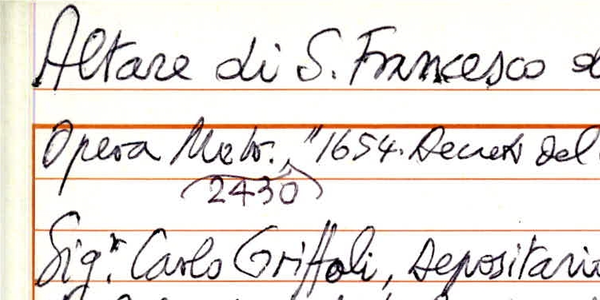 Altare di S. Francesco d
Opera Metr., "1654. Decreto del
(2430)
Sig.r Carlo Griffoli, depositario